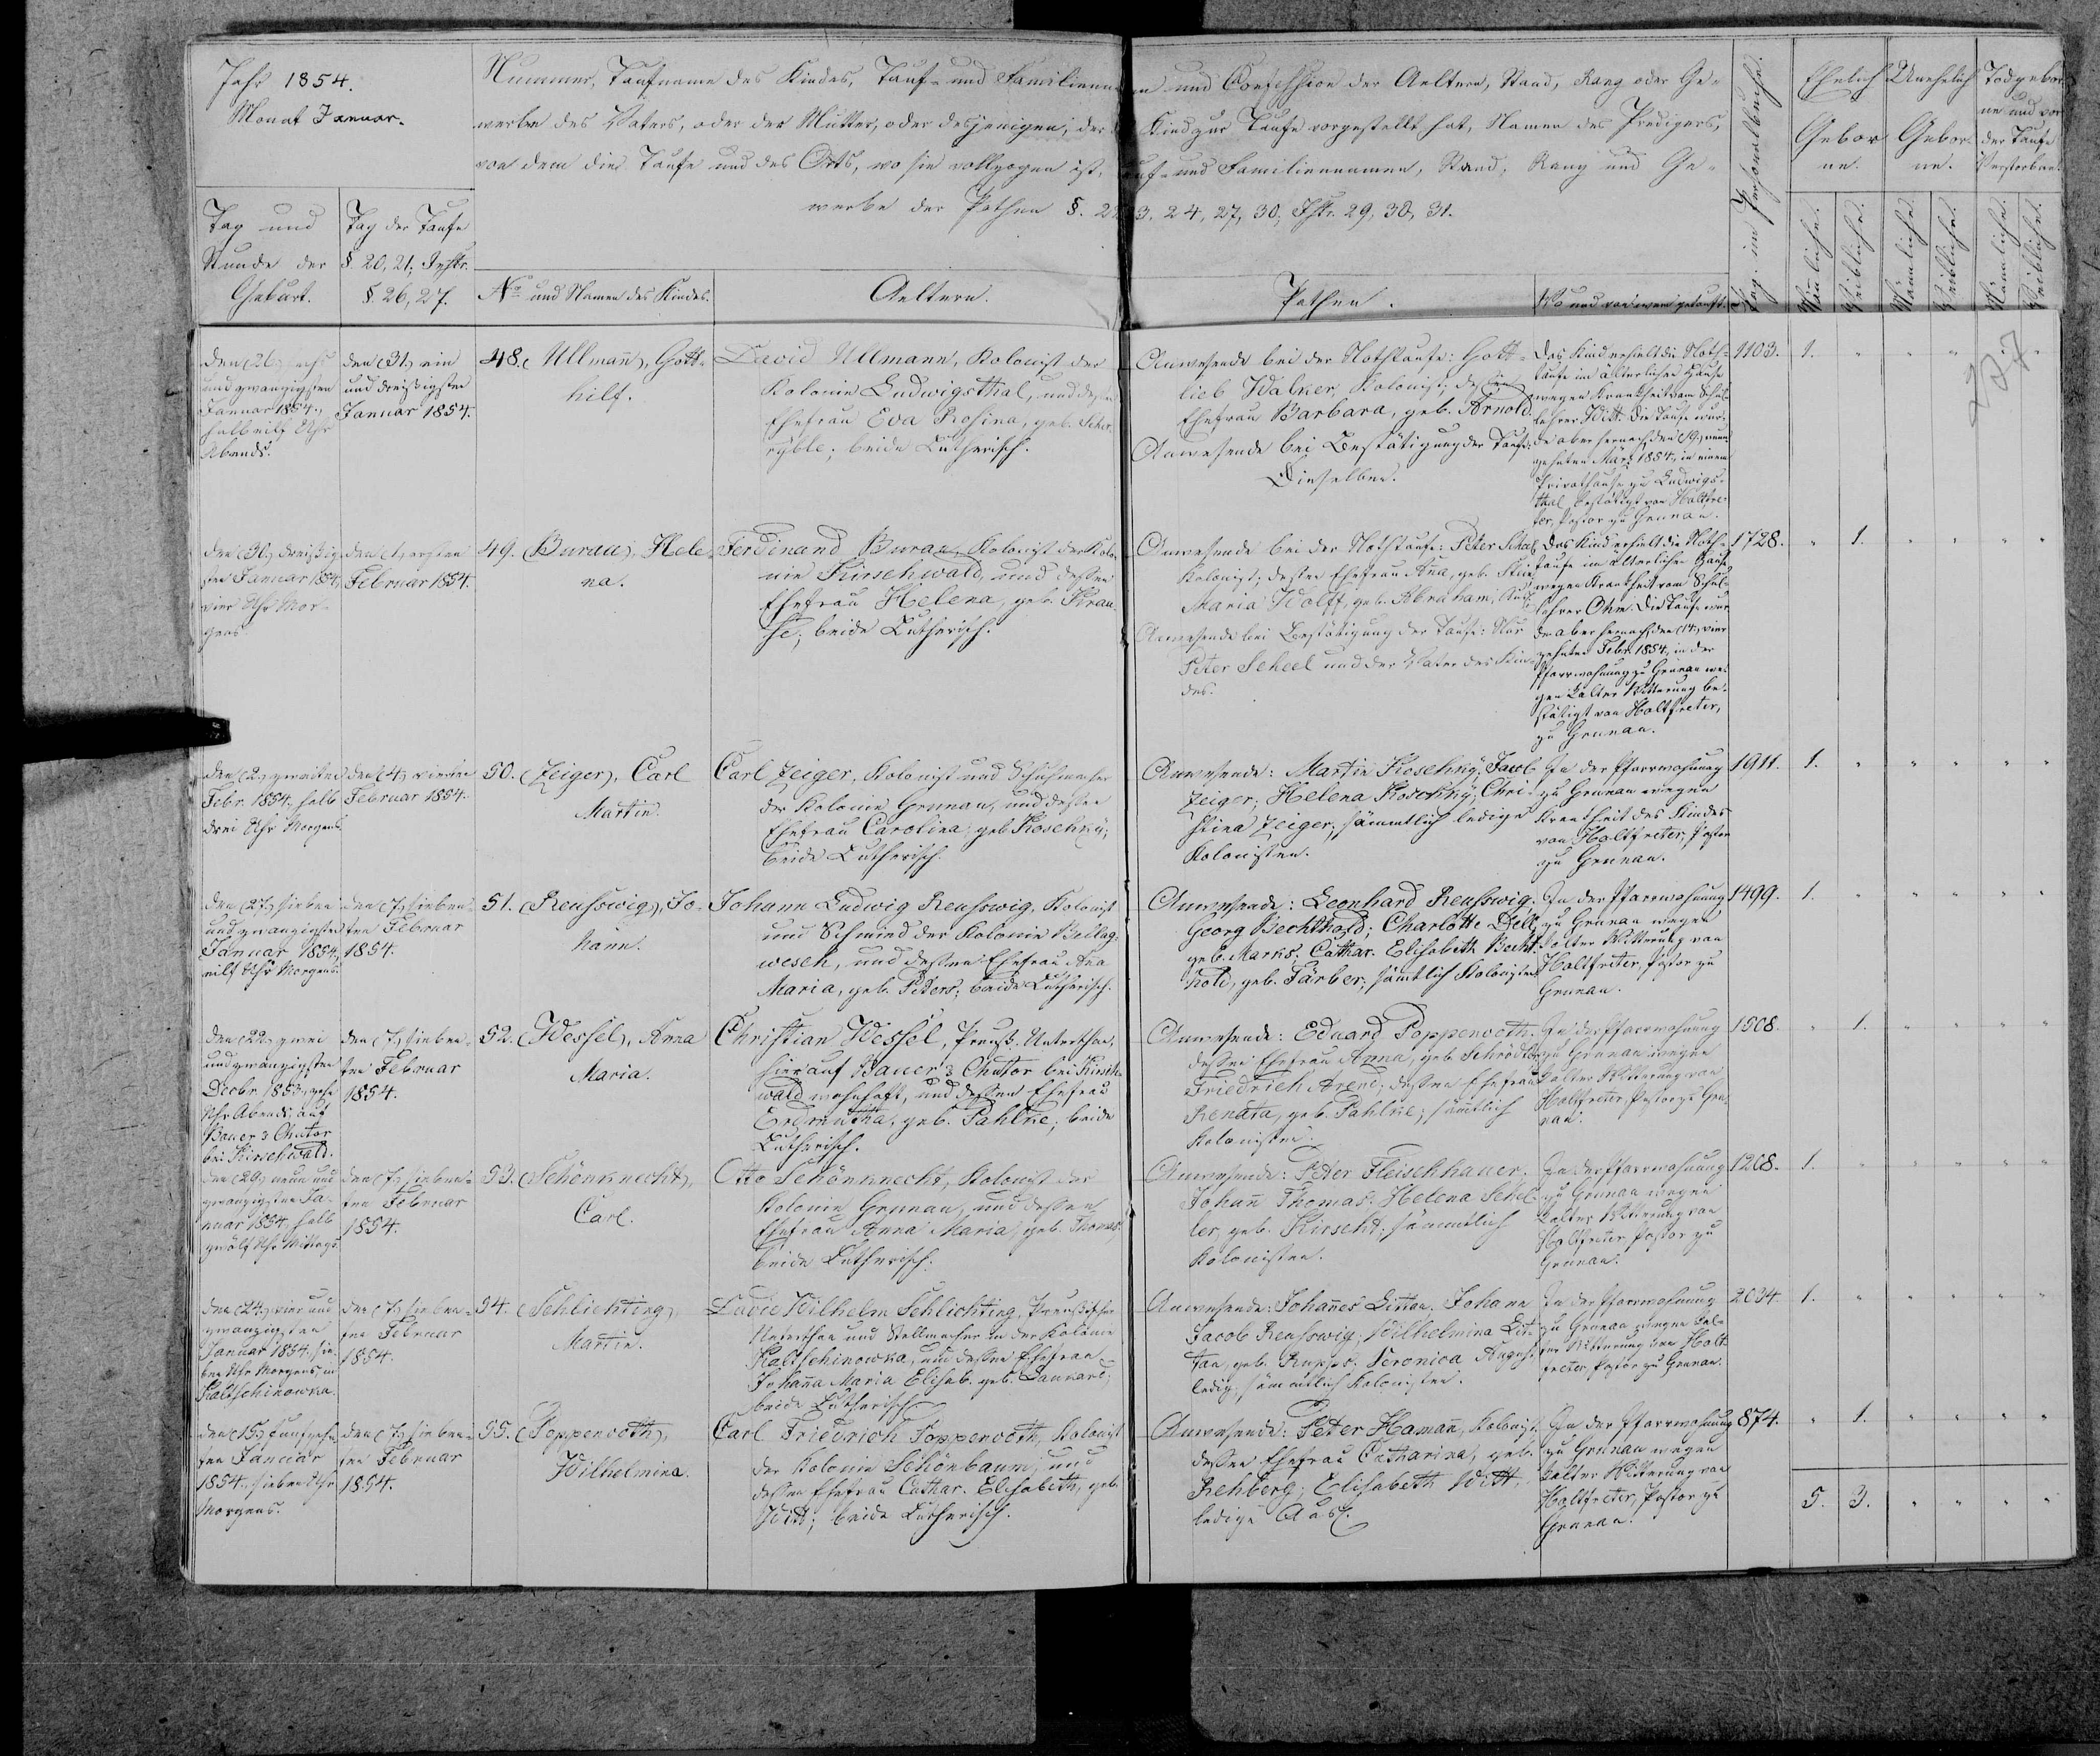 Jahr 1854.
Monat Januar.
Tag und
Stunde der
Geburt.
Tag der Taufe
§. 20, 21; Instr.
§. 26, 27.
Nummer, Taufname des Kindes, Tauf- und Familienna
werbe des Vaters, oder der Mutter, oder desjenigen, der
von dem die Taufe und des Orts, wo sie vollzogen ist,
werbe der Pathen §. 22
No und Namen des Kindes.
Aeltern.
n und Confession der Aeltern, Stand, Rang oder Ge-
Kind zur Taufe vorgestellt hat, Namen des Predigers,
auf- und Familiennamen, Stand, Rang und Ge-
3. 24, 27, 30; Istr. 29, 30, 31.
Pathen.
Wo und von wem getauft.
Pag. im Personalbuche.
Ehelich
Gebor
ne.
Unehelich
Gebor
ne.
Todgebor
ne und vor
der Taufe
Verstorbene.
Männliche.
Weibliche.
Männliche.
Weibliche.
Männliche.
Weibliche.
den (26.) sechs
und zwanzigsten
Januar 1854.,
halb eilf Uhr
Abends.
den (31.) ein
und dreißigsten
Januar 1854.
48. (Ullmañ), Gott-
hilf.
David Ullmann, Kolonist der
Kolonie Ludwigsthal, und dessen
Ehefrau Eva Rosina, geb. Scher-
ryble; beide Lutherisch.
Anwesende bei der Nothtaufe: Gott-
lieb Walker, Kolonist; dessen
Ehefrau Barbara, geb. Arnold.
Anwesende bei Bestätigung der Taufe:
Dieselben.
Das Kind erhielt die Noth-
taufe im älterlichen Hause
wegen Krankheit vom Schul-
lehrer Witt. Die Taufe wur-
de aber hernach den (19.) neun-
zehnten März 1854., in einem
Privathause zu Ludwigs-
thal bestätigt von Holtfre-
ter, Pastor zu Grunau.
1103.
1.
den (30.) dreißig-
sten Januar 1854,
vier Uhr Mor-
gens.
den (1.) ersten
Februar 1854.
49. (Burau), Hele-
na.
Ferdinand Burau, Kolonist der Kolo-
nie Kirschwald, und dessen
Ehefrau Helena, geb. Krau-
se; beide Lutherisch.
Anwesende bei der Nothtaufe: Peter Scheel,
Kolonist; dessen Ehefrau Aña, geb.
Maria Wolff, geb. Abraham,
Anwesende bei Bestätigung der Taufe: Nur
Peter Scheel und der Vater des Kin-
des.
Das Kind erhielt die Noth-
taufe im älterlichen Hause
wegen Krankheit vom Schul-
lehrer Ohm. Die Taufe wur-
de aber hernach, den (14.) vier
zehnten Febr. 1854., in der
Pfarrwohnung zu Grunau we-
gen kalter Witterung be-
stätigt von Holtfreter,
zu Grunau.
1728.
1.
den (2.) zweiten
Febr. 1854., halb
drei Uhr Morgens.
den (4.) vierten
Februar 1854.
50. (Zeiger), Carl
Martin.
Carl Zeiger, Kolonist und Schuhmacher
der Kolonie Grunau, und dessen
Ehefrau Carolina, geb. Koschky;
beide Lutherisch.
Anwesende: Martin Koschky; Jacob
Zeiger; Helena Koschky; Chri-
stina Zeiger; sämmtlich ledige
Kolonisten.
In der Pfarrwohnung
zu Grunau wegen
Krankheit des Kindes
von Holtfreter, Pastor
zu Grunau.
1911.
1.
den (27.) sieben
und zwanzigsten
Januar 1854,
eilf Uhr Morgens.
den (7.) sieben-
ten Februar
1854.
51. (Renßwig), Jo-
hann.
Johann Ludwig Renßwig, Kolonist
und Schmied der Kolonie Bellag-
wesch, und dessen Ehefrau Aña
Maria, geb. Peters; beide Lutherisch.
Anwesende: Leonhard Renßwig;
Georg Bechthold; Charlotte Dell,
geb. Marks; Cathar. Elisabeth Becht-
hold, geb. Färber; sämtlich Kolonisten.
In der Pfarrwohnung
zu Grunau wegen
kalter Witterung von
Holtfreter, Pastor zu
Grunau.
1499.
1.
den (22.) zwei
und zwanzigsten
Decbr. 1853., zehn
Uhr Abends; auf
Bauer's Chutor
bei Kirschwald.
den (7.) sieben-
ten Februar
1854.
52. (Wessel), Anna
Maria.
Christian Wessel, Preuß. Unterthan,
hier auf Bauer's Chutor bei Kirsch-
wald wohnhaft, und dessen Ehefrau
Erdmuthe, geb. Pahlke; beide
Lutherisch.
Anwesende: Eduard Poppenroth,
dessen Ehefrau Anna, geb. Schrödter;
Friedrich Arend; dessen Ehefrau
Renata, geb. Pahlke; sämtlich
Kolonisten.
In der Pfarrwohnung
zu Grunau wegen
kalter Witterung von
Holtfreter, Pastor zu Gru-
nau.
1508.
1.
den (29.) neun und
zwanzigsten Ja-
nuar 1854., halb
zwölf Uhr Mittags.
den (7.) sieben-
ten Februar
1854.
53. (Schönknecht),
Carl.
Otto Schönknecht, Kolonist der
Kolonie Grunau, und dessen
Ehefrau Anna Maria, geb. Thomas;
beide Lutherisch.
Anwesende: Peter Fleischhauer;
Johañ Thomas; Helena Schel-
ler, geb. Kirscht; sämmtlich
Kolonisten.
In der Pfarrwohnung
zu Grunau wegen
kalter Witterung von
Holtfreter, Pastor zu
Grunau.
1208.
1.
den (24.) vier und
zwanzigsten
Januar 1854., sie-
ben Uhr Morgens, in
Kaltschinowka.
den (7.) sieben-
ten Februar
1854.
54. (Schlichting),
Martin.
David Wilhelm Schlichting, Preußischer
Unterthan und Stellmacher in der Kolonie
Kaltschinowka, und dessen Ehefrau
Johaña Maria Elisab. geb. Dankart;
beide Lutherisch.
Anwesende: Johañes Dittau; Johann
Jacob Renßwig; Wilhelmina Dit-
tau, geb. Rupps; Veronica August,
ledig; sämmtlich Kolonisten.
In der Pfarrwohnung
zu Grunau wegen kal-
ter Witterung von Holt-
freter, Pastor zu Grunau.
2034.
1.
den (15.) fünfzehn-
ten Januar
1854., sieben Uhr
Morgens.
den (7.) sieben-
ten Februar
1854.
55. (Poppenroth),
Wilhelmina.
Carl Friedrich Poppenroth, Kolonist
der Kolonie Schönbaum, und
dessen Ehefrau Cathar. Elisabeth, geb.
Witt; beide Lutherisch.
Anwesende: Peter Hamañ, Kolonist;
dessen Ehefrau Catharina, geb.
Rehberg; Elisabeth Witt,
ledige
In der Pfarrwohnung
zu Grunau wegen
kalter Witterung von
Holtfreter, Pastor zu
Grunau.
874.
1.
5. 3.